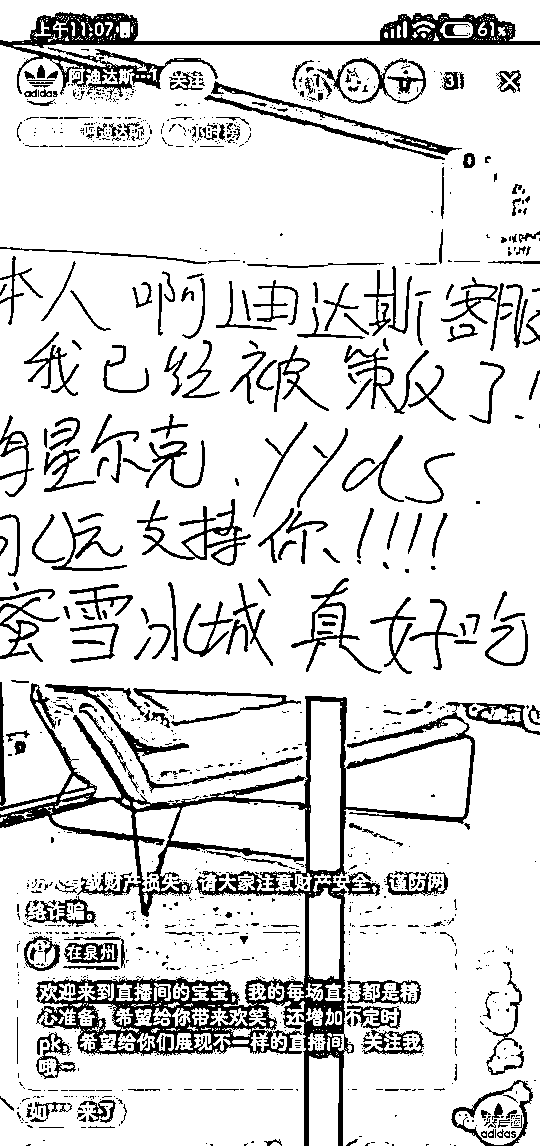 上午11:07
61%
adidas
阿迪达斯
关注
31
阿迪达斯
小时榜
本人 啊迪达斯客服
我已经被策反了!
星尔克.yyds.
永远支持你!!!!
蜜雪冰城真好吃
财产损失,请大家注意财产安全,谨防网
络诈骗。
在泉州
欢迎来到直播间的宝宝,我的每场直播都是精
心准备,希望给你带来欢笑,还增加不定时
pk,希望给你们展现不一样的直播间,关注我
哦~
来了
adidas